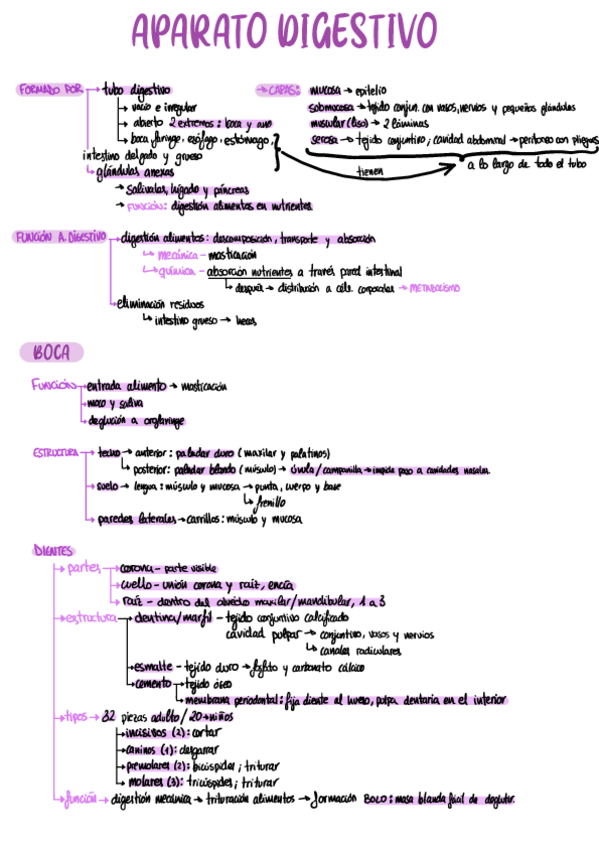 APARATO DIGESTIVO
FORMADO POR → tubo digestivo
→ vacío e irregular
→ abierto 2 extremos: boca y ano
→ boca, faringe, esófago, estómago,
intestino delgado y grueso
→ glándulas anexas
→ Salivales, hígado y páncreas
→ FUNCIÓN: digestión alimentos en nutrientes
→ CAPAS: mucosa → epitelio
submucosa → tejido conjun. con vasos, nervios y pequeñas glándulas
muscular (liso) → 2 láminas
serosa → tejido conjuntivo; cavidad abdominal → peritoneo con pliegues
tienen
a lo largo de todo el tubo
FUNCIÓN A. DIGESTIVO → digestión alimentos: descomposición, transporte y absorción
→ mecánica - masticación
→ química - absorción nutrientes a través pared intestinal
→ después → distribución a céls. corporales → METABOLISMO
→ eliminación residuos
→ intestino grueso → heces
BOCA
FUNCIÓN → entrada alimento → masticación
→ moco y saliva
→ deglución a orofaringe
ESTRUCTURA → techo → anterior: paladar duro (maxilar y palatinos)
→ posterior: paladar blando (músculo) → úvula/campanilla → impide paso a cavidades nasales
→ suelo → lengua: músculo y mucosa → punta, cuerpo y base
→ frenillo
→ paredes laterales → carrillos: músculo y mucosa
DIENTES
→ partes → corona - parte visible
→ cuello - unión corona y raíz, encía
→ raíz - dentro del alveolo maxilar/mandibular, 1 a 3
→ estructura → dentina/marfil - tejido conjuntivo calcificado
cavidad pulpar → conjuntivo, vasos y nervios
→ canales radiculares
→ esmalte - tejido duro → fosfato y carbonato cálcico
→ cemento → tejido óseo
→ membrana periodontal: fija diente al hueso, pulpa dentaria en el interior
→ tipos → 32 piezas adulto / 20 → niños
→ incisivos (2): cortar
→ caninos (1): desgarrar
→ premolares (2): bicúspides; triturar
→ molares (3): tricúspides; triturar
→ función → digestión mecánica → trituración alimentos → formación BOLO: masa blanda fácil de deglutir.